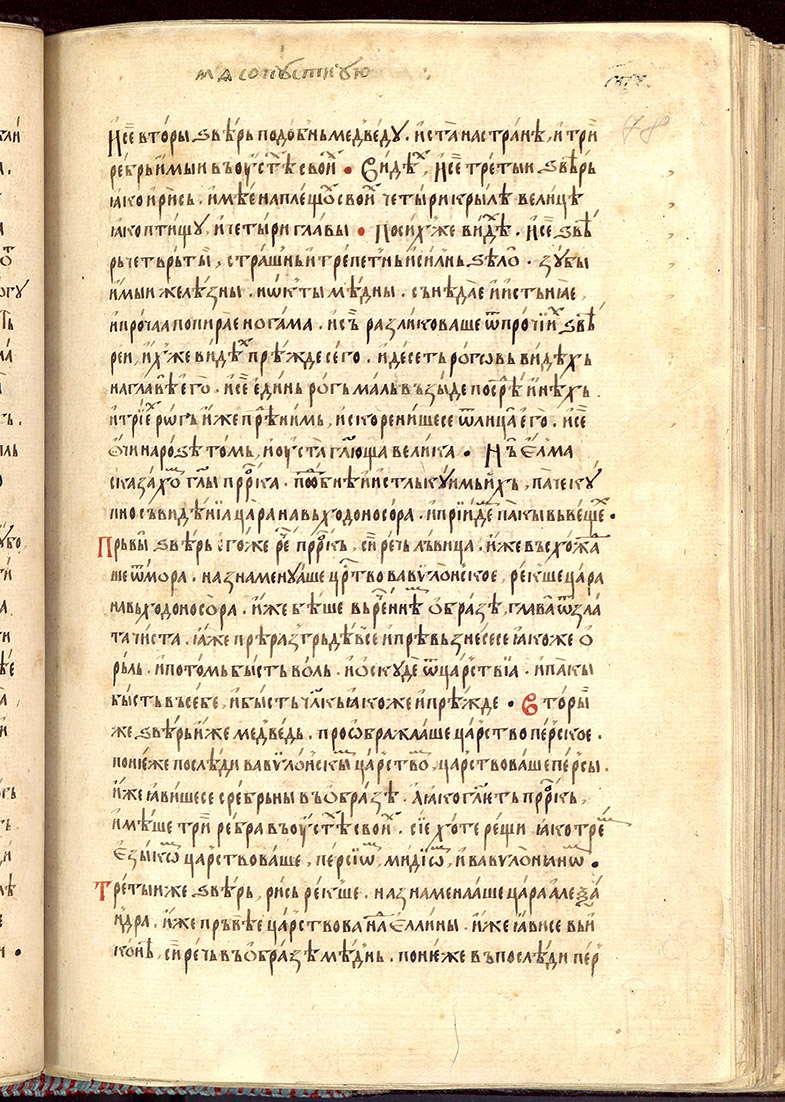 масопустную
И҆се вторы ѕвѣрь подобьнь медведу. и҆ ста на странѣ, и҆ три
ребры имыи въ оустѣⷯ свои̑ⷯ • Видѣⷯ, И҆се третыи ѕвѣрь
ꙗко и҆ рись. имѣе на плещоⷯ своиⷯ четыри крылѣ велицѣ
ꙗко птищу, и҆ четыри главы • По сиⷯже видⷯѣ. И҆се ѕвѣ
рь четврьтыи, страшнь и҆ трепетнь и҆ силнь ѕѣло. зубы
имыи желѣзны. нѡкты мѣдны. сънѣдае и҆ истьнꙗе,
и҆ прочаа попирае ногама. и҆ съ разликоваше ѿ прочїиⷯ ѕвѣ
реи, иⷯже видѣⷯ прѣжде сего. и҆ десеть рогѡвь видѣхь
на главѣ его. и҆се единь рогь маль възыде посрⷣѣ инѣхь.
и҆ трїеⷯ рѡгь иже прⷣѣ нимь, искоренише се ѿ лица его. и҆се
очи на роѕѣ томь, и҆ оуста глⷢ҇люща велика • Нь Елма
сказахоⷨ глы прⷪ҇рка. подⷪ҇бнѣ и҆ истлькуимь ихь, паче ку
пно съ видѣнїа цара навьходоносора. и҆ прїидⷨе пакы вь веще •
Прьвыи ѕвѣрь егоже рⷱ҇е прⷪ҇ркь, сирѣчь львица. иже въсхожⷣа
ше ѿ мора. назнаменуаше црⷭ҇тво вавѵлонское, рекше цара
навьходоносора. иже бѣше вь врⷨеннѣ образѣ, глава ѿ зла
та чиста. ꙗже прѣразгрьдѣ все и҆ прѣвьзнесе се ꙗкоже о
рьль. и҆ потомь бысть воль. и҆ оскудѣ ѿ царствїа. и҆ пакы
бысть въ себе, и҆ бысть члⷦ҇ь ꙗкоже и҆ прѣжде • Вторыи
же ѕвѣрь иже медвѣдь. проѡбражааше царство перское.
понеже послѣди вавѵлонскыⷨ царствоⷨ, царствоваше персы.
иже ꙗвише се сребрьны въ образѣ. а ꙗко глⷢ҇ть прⷪ҇ркь,
имѣше три ребра въ оустѣⷯ своиⷯ. сїе хоте рещи ꙗко треⷨ
Езыкѡⷨ царствоваше, персїѡⷨ, мидїѡⷨ, и҆ вавѵлонианѡⷨ •
Третыи же ѕвѣрь, рись рекше. назнаменааше цара алеѯа
ндра. иже прьвѣе царствова на Еллины. иже ꙗви се вьи
конѣ, сирѣчь въ образѣ мѣднь. понеже въпослѣди перⷭ҇